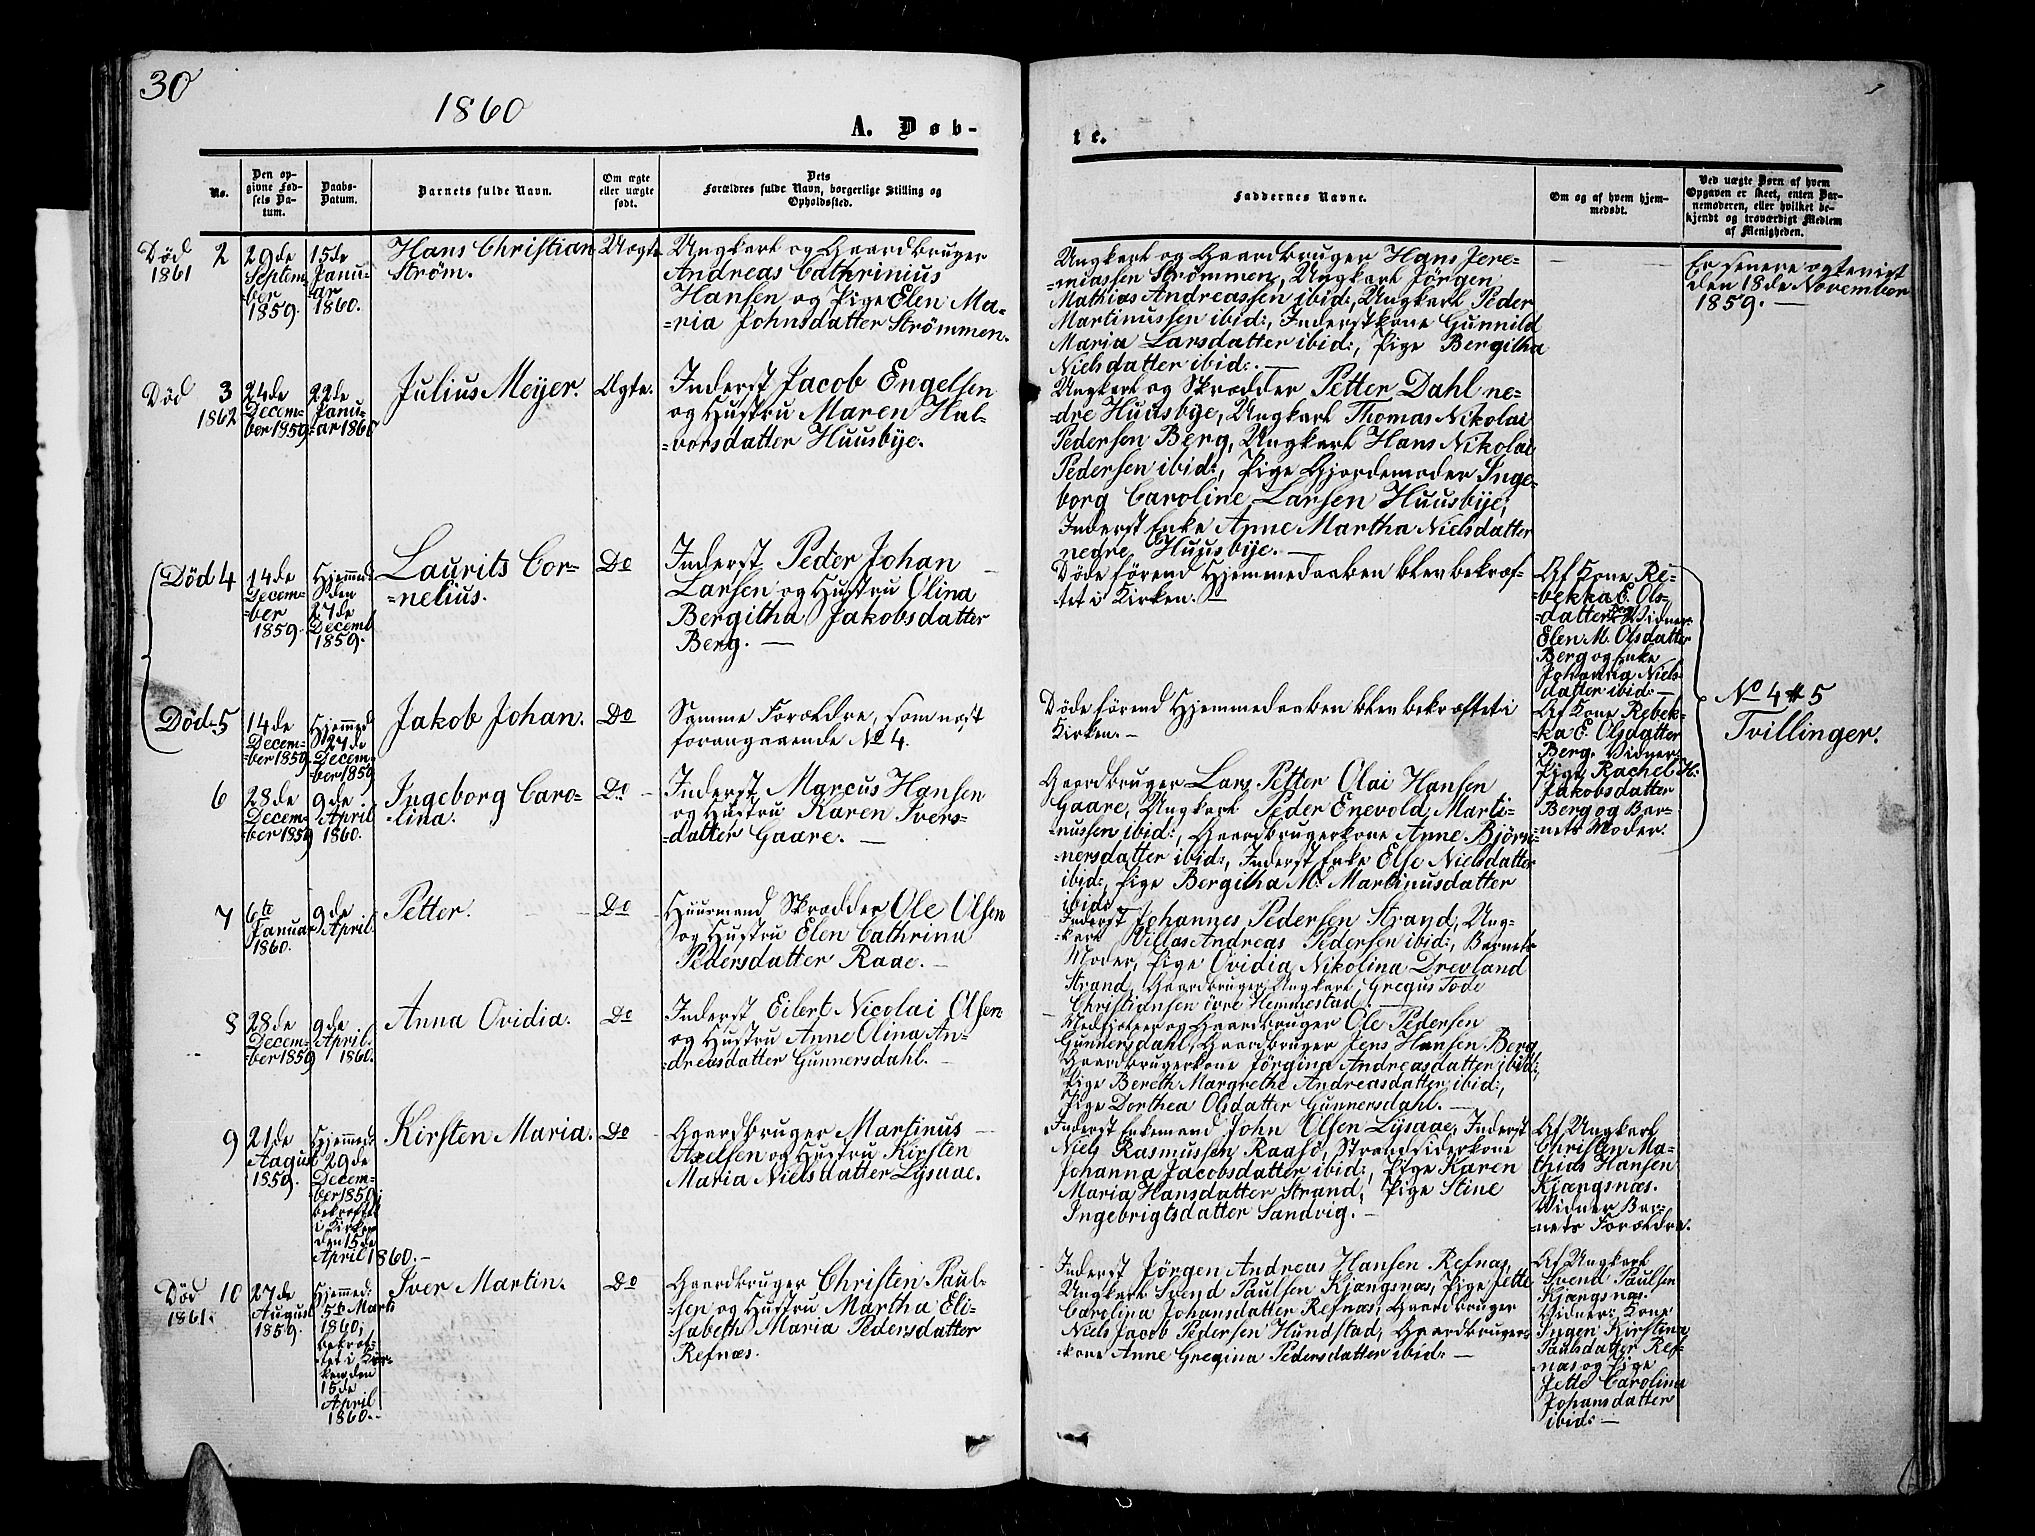 30
1860
A. Døb-
te.
No.
Den op-
givne Fød-
sels Da-
tum.
Daabs-
Datum.
Barnets fulde Navn.
Om ægte
eller uægte
født.
Dets
Forældres fulde Navn, borgerlige Stilling og
Opholdssted.
Faddernes Navne.
Om og af hvem hjem-
medøbt.
Ved uægte Børn af hvem
Opgaven er skeet, enten Bar-
nemoderen, eller hvilket be-
kjendt og troværdigt Medlem
af Menigheden.
Død
1861
2
29de
Septem-
ber
1859.
15de
Janu-
ar
1860.
Hans Christian
Strøm.
Uægte
Ungkarl og Gaardbruger
Andreas Cathrinius
Hansen og Pige Elen Ma-
=ria Johnsdatter Strømmen.
Ungkarl og Gaardbruger Hans Jere-
=miassen Strømmen, Ungkarl Jörgen
Mathias Andreassen ibid:, Ungkarl Peder
Martinussen ibid:, Inderstkone Gunnild
Maria Larsdatter ibid:, Pige Bergitha
Nielsdatter ibid:. —
Er senere ægteviet
den 18de November
1859. —
Død
1862
3
24de
Decem-
ber 1859.
22de
Janu-
ar 1860
Julius Meyer.
Ægte.
Inderst Jacob Engelsen
og Hustru Maren Hal-
=vorsdatter Huusbye.
Ungkarl og Skrædder Petter Dahl ne-
=dre Huusbye, Ungkarl Thomas Nikolai
Pedersen Berg, Ungkarl Hans Nikolai
Pedersen ibid:, Pige Gjordemoder Inge-
borg Caroline Larsen Huusbye,
Inderst Enke Anne Martha Nielsdatter
nedre Huusbye. —
Død 4
14de
Decem-
ber
1859.
Hjemmed:
den
27de
Decemb
1859.
Laurits Cor-
=nelius.
Do
Inderst Peder Johan
Larsen og Hustru Olina
Bergitha Jakobsdatter
Berg. —
Døde førend Hjemmedaaben blev bekræf-
tet i Kirken. —
Af Kone Re-
=bekka E. Ols-
=datter Berg Vidner
Elen M. Olsdatter
Berg og Enke
Niels-
datter ibid: —
No 4 & 5
Tvillinger.
Død. 5
14de
Decem-
ber 1859
Hjemmed
27de
Decem-
ber 1859
Jakob Johan.
Do
Samme Forældre, som næst
foregaaende No 4.
Døde førend Hjemmedaaben blev bekræftet i
Kirken. —
Af Kone Rebek-
=ka E. Olsdatter
Berg. Vidner
Pige Rachel H:
Jakobsdatter
Berg og Bar-
=nets Moder.
6
28de
Decem-
ber 1859
9de
April
1860.
Ingeborg Caro-
=lina.
Do
Inderst Marcus Hansen
og Hustru Karen Ivers-
=datter Gaare. —
Gaardbruger Lars Petter Olai Hansen
Gaare, Ungkarl Peder Enevold Marti-
=nussen ibid:, Gaardbrugerkone Anne Bjørn-
=nersdatter ibid:, Inderst Enke Else Nielsdatter
ibid:, Pige Bergitha M: Martinusdatter
ibid:
7
6te
Januar
1860.
9de
April
Petter.
Do
Huusmand Skrædder Ole Olsen
og Hustru Elen Cathrina
Pedersdatter Raae. —
Inderst Johannes Pedersen Strand, Ung-
=karl Villas Andreas Pedersen ibid:, Barnets
Moder, Pige Ovidia Nikolina Drevland
Strand, Gaardbruger Ungkarl Gregus Tode
Christiansen övre Hemmestad. —
8
28de
Decem-
ber 1859
9de
April.
1860.
Anna Ovidia.
Do
Inderst Eilert Nicolai Olsen
og Hustru Anne Olina An-
=dreasdatter Gunnersdahl. —
Medhjelper og Gaardbruger Ole Pedersen
Gunnersdahl, Gaardbruger Jens Hansen Berg
Gaardbrugerkone Jørgina Andreasdatter ibid:,
Pige Bereth Margrethe Andreasdatter ibid:,
Pige Dorthea Olsdatter Gunnersdahl. —
9
21de
August
1859.
Hjemmed:
29de
Decem-
ber 1859;
bekræftet
i Kirken
den 15de
April 1860. —
Kirsten Maria.
Do
Gaardbruger Martinus
Axelsen og Hustru Kirsten
Maria Nielsdatter Lysaae.
Inderst Enkemand John Olsen Lysaae, Inderst
Niels Rasmussen Raasø, Strandsiderkone
Johanna Jacobsdatter ibid:, Pige Karen
Maria Hansdatter Strand, Pige Stine
Ingebrigtsdatter Sandvig. —
Af Ungkarl
Christen Ma-
thias Hansen
Kjængsnæs.
Vidner Bar-
=nets Forældre.
Død
1861.
10
27de
August
1859.
Hjemmed:
5te Marts
1860;
bekræf-
=tet i Kir-
ken den
15de
April
1860. —
Iver Martin.
Do
Gaardbruger Christen Paul-
=sen og Hustru Martha Eli-
=sabeth Maria Pedersdatter
Refnæs.
Inderst Jörgen Andreas Hansen Refnæs,
Ungkarl Svend Paulsen Kjængsnæs, Pige Jette
Carolina Johansdatter Refnæs, Gaardbruger
Niels Jacob Pedersen Hundstad, Gaardbruger-
=kone Anne Gregina Pedersdatter ibid: —
Af Ungkarl
Svend Paulsen
Kjængsnæs.
Vidner: Kone
Ingen Kirstina
Paulsdatter Ref-
næs og Pige
Jette Carolina
Johansdatter
ibid: —